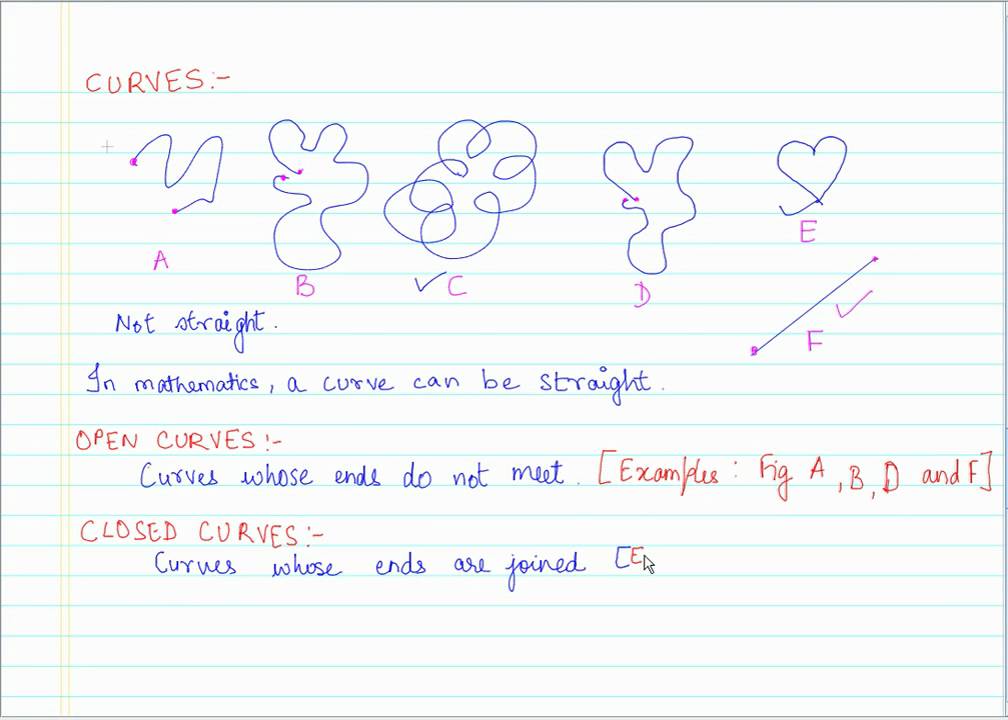 CURVES:-
A
B
C
D
E
F
Not straight.
In mathematics, a curve can be straight.
OPEN CURVES:-
Curves whose ends do not meet. [Examples: Fig A, B, D and F]
CLOSED CURVES:-
Curves whose ends are joined [E